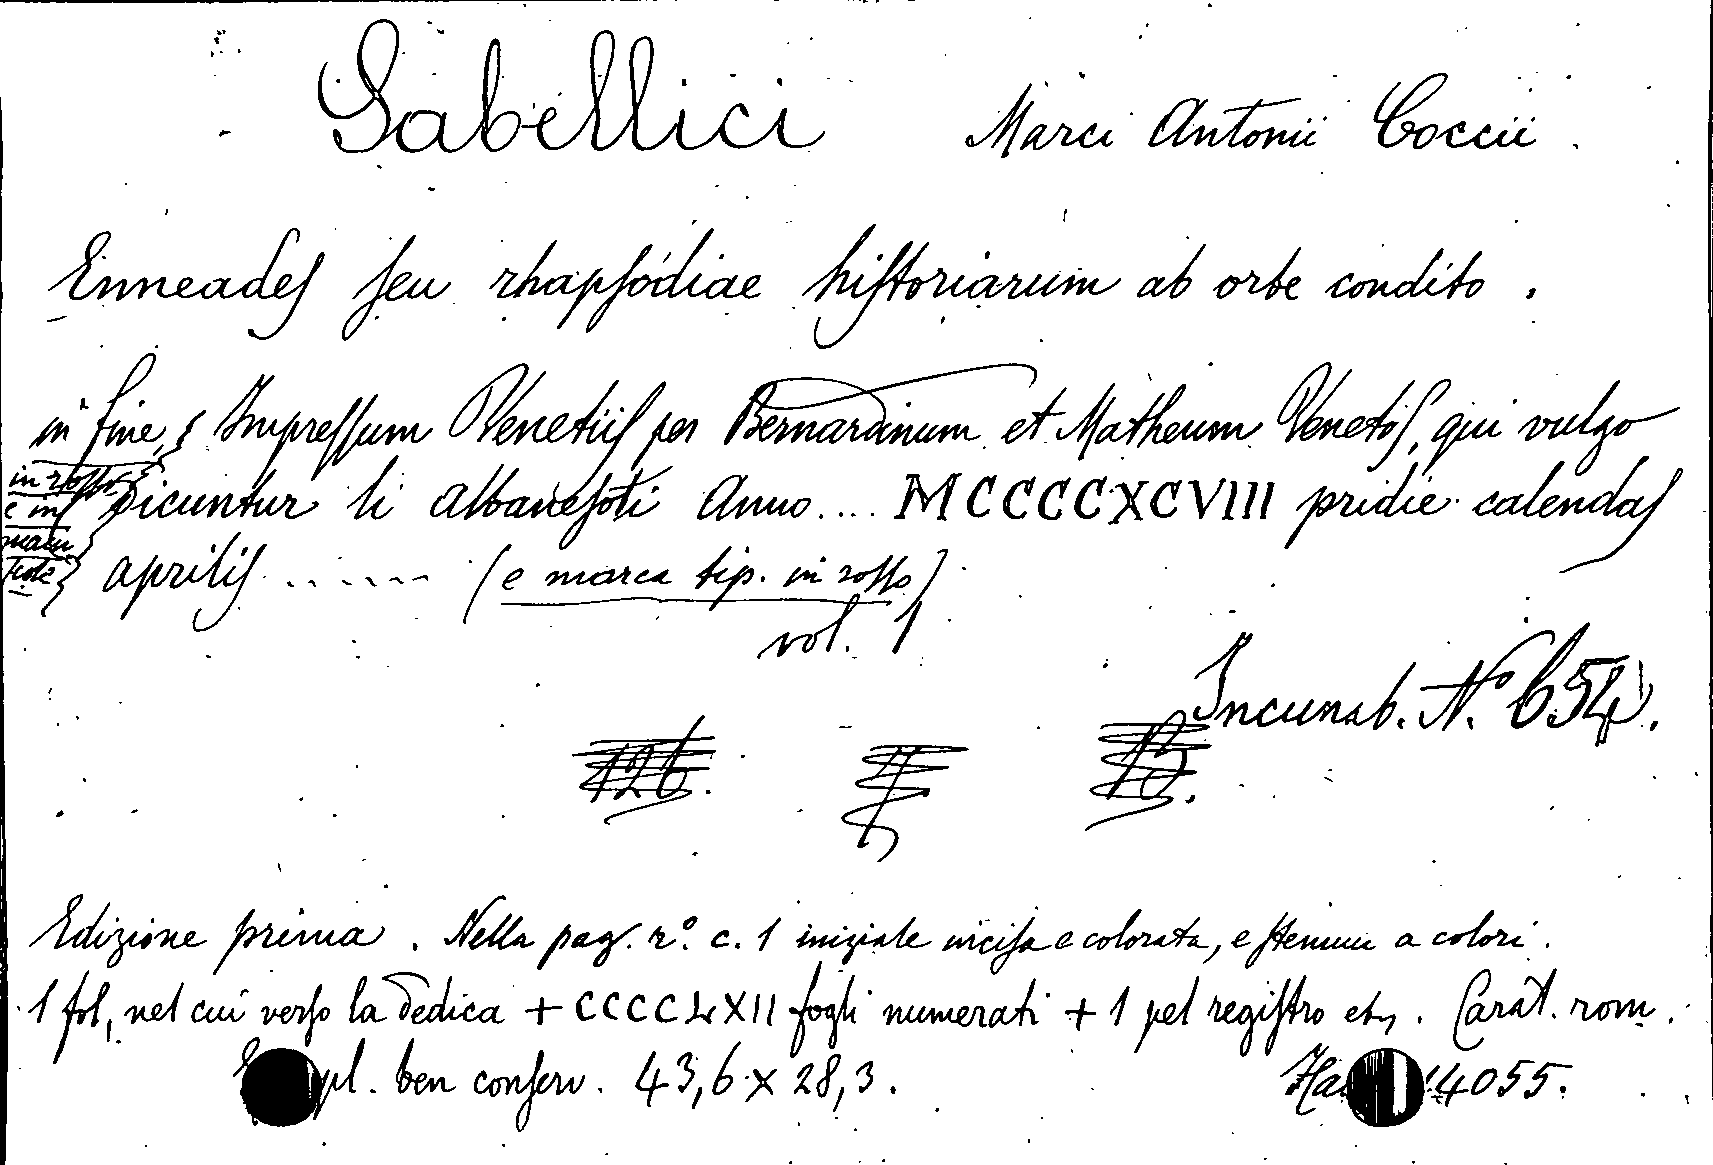 Sabellici Marci Antonii Coccii.
Enneadeſ ſeu rhapſodiae hiſtoriarum ab orbe condito.
in fine, Impreſſum Venetiiſ per Bernardinum et Matheum Venetoſ, qui vulgo
in roſſo dicuntur li albaneſoti Anno.... MCCCCXCVIII pridie calendaſ
e in
apriliſ ...... (e marca tip. in roſſo)
vol. 1
Incunab. No 654.
126. 15.
Edizione prima. Nella pag. ro. c. 1 iniziale inciſa e colorata, e ſtemma a colori.
1 fol, nel cui verſo la dedica + CCCCLXII fogli numerati + 1 pel regiſtro etc. Carat. rom.
pl. ben conſerv. 43,6 x 28,3. Ha 14055.